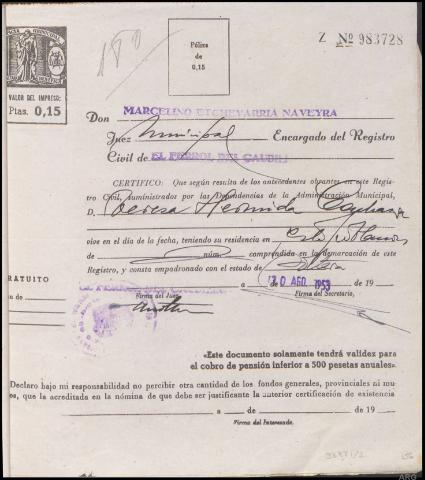 Z Nº 983728
180
Póliza
de
0,15
VALOR DEL IMPRESO:
Ptas. 0,15
Don MARCELINO ETCHEVARRIA NAVEYRA
Juez Municipal Encargado del Registro
Civil de EL FERROL DEL CAUDILLO
CERTIFICO: Que según resulta de los antecedentes obrantes en este Regis-
tro Civil, suministrados por las Dependencias de la Administración Municipal,
D. Teresa Hermida
vive en el día de la fecha, teniendo su residencia en
de núm. comprendida en la demarcación de este
Registro, y consta empadronado con el estado de Soltera
RATUITO
EL FERROL DEL CAUDILLO a de 20 AGO. 1953 de 19
Firma del Juez,
Firma del Secretario,
de
de 19
«Este documento solamente tendrá validez para
el cobro de pensión inferior a 500 pesetas anuales».
Declaro bajo mi responsabilidad no percibir otra cantidad de los fondos generales, provinciales ni mu
es, que la acreditada en la nómina de que debe ser justificante la anterior certificación de existencia
a de de 19
Firma del Interesado.
ARG